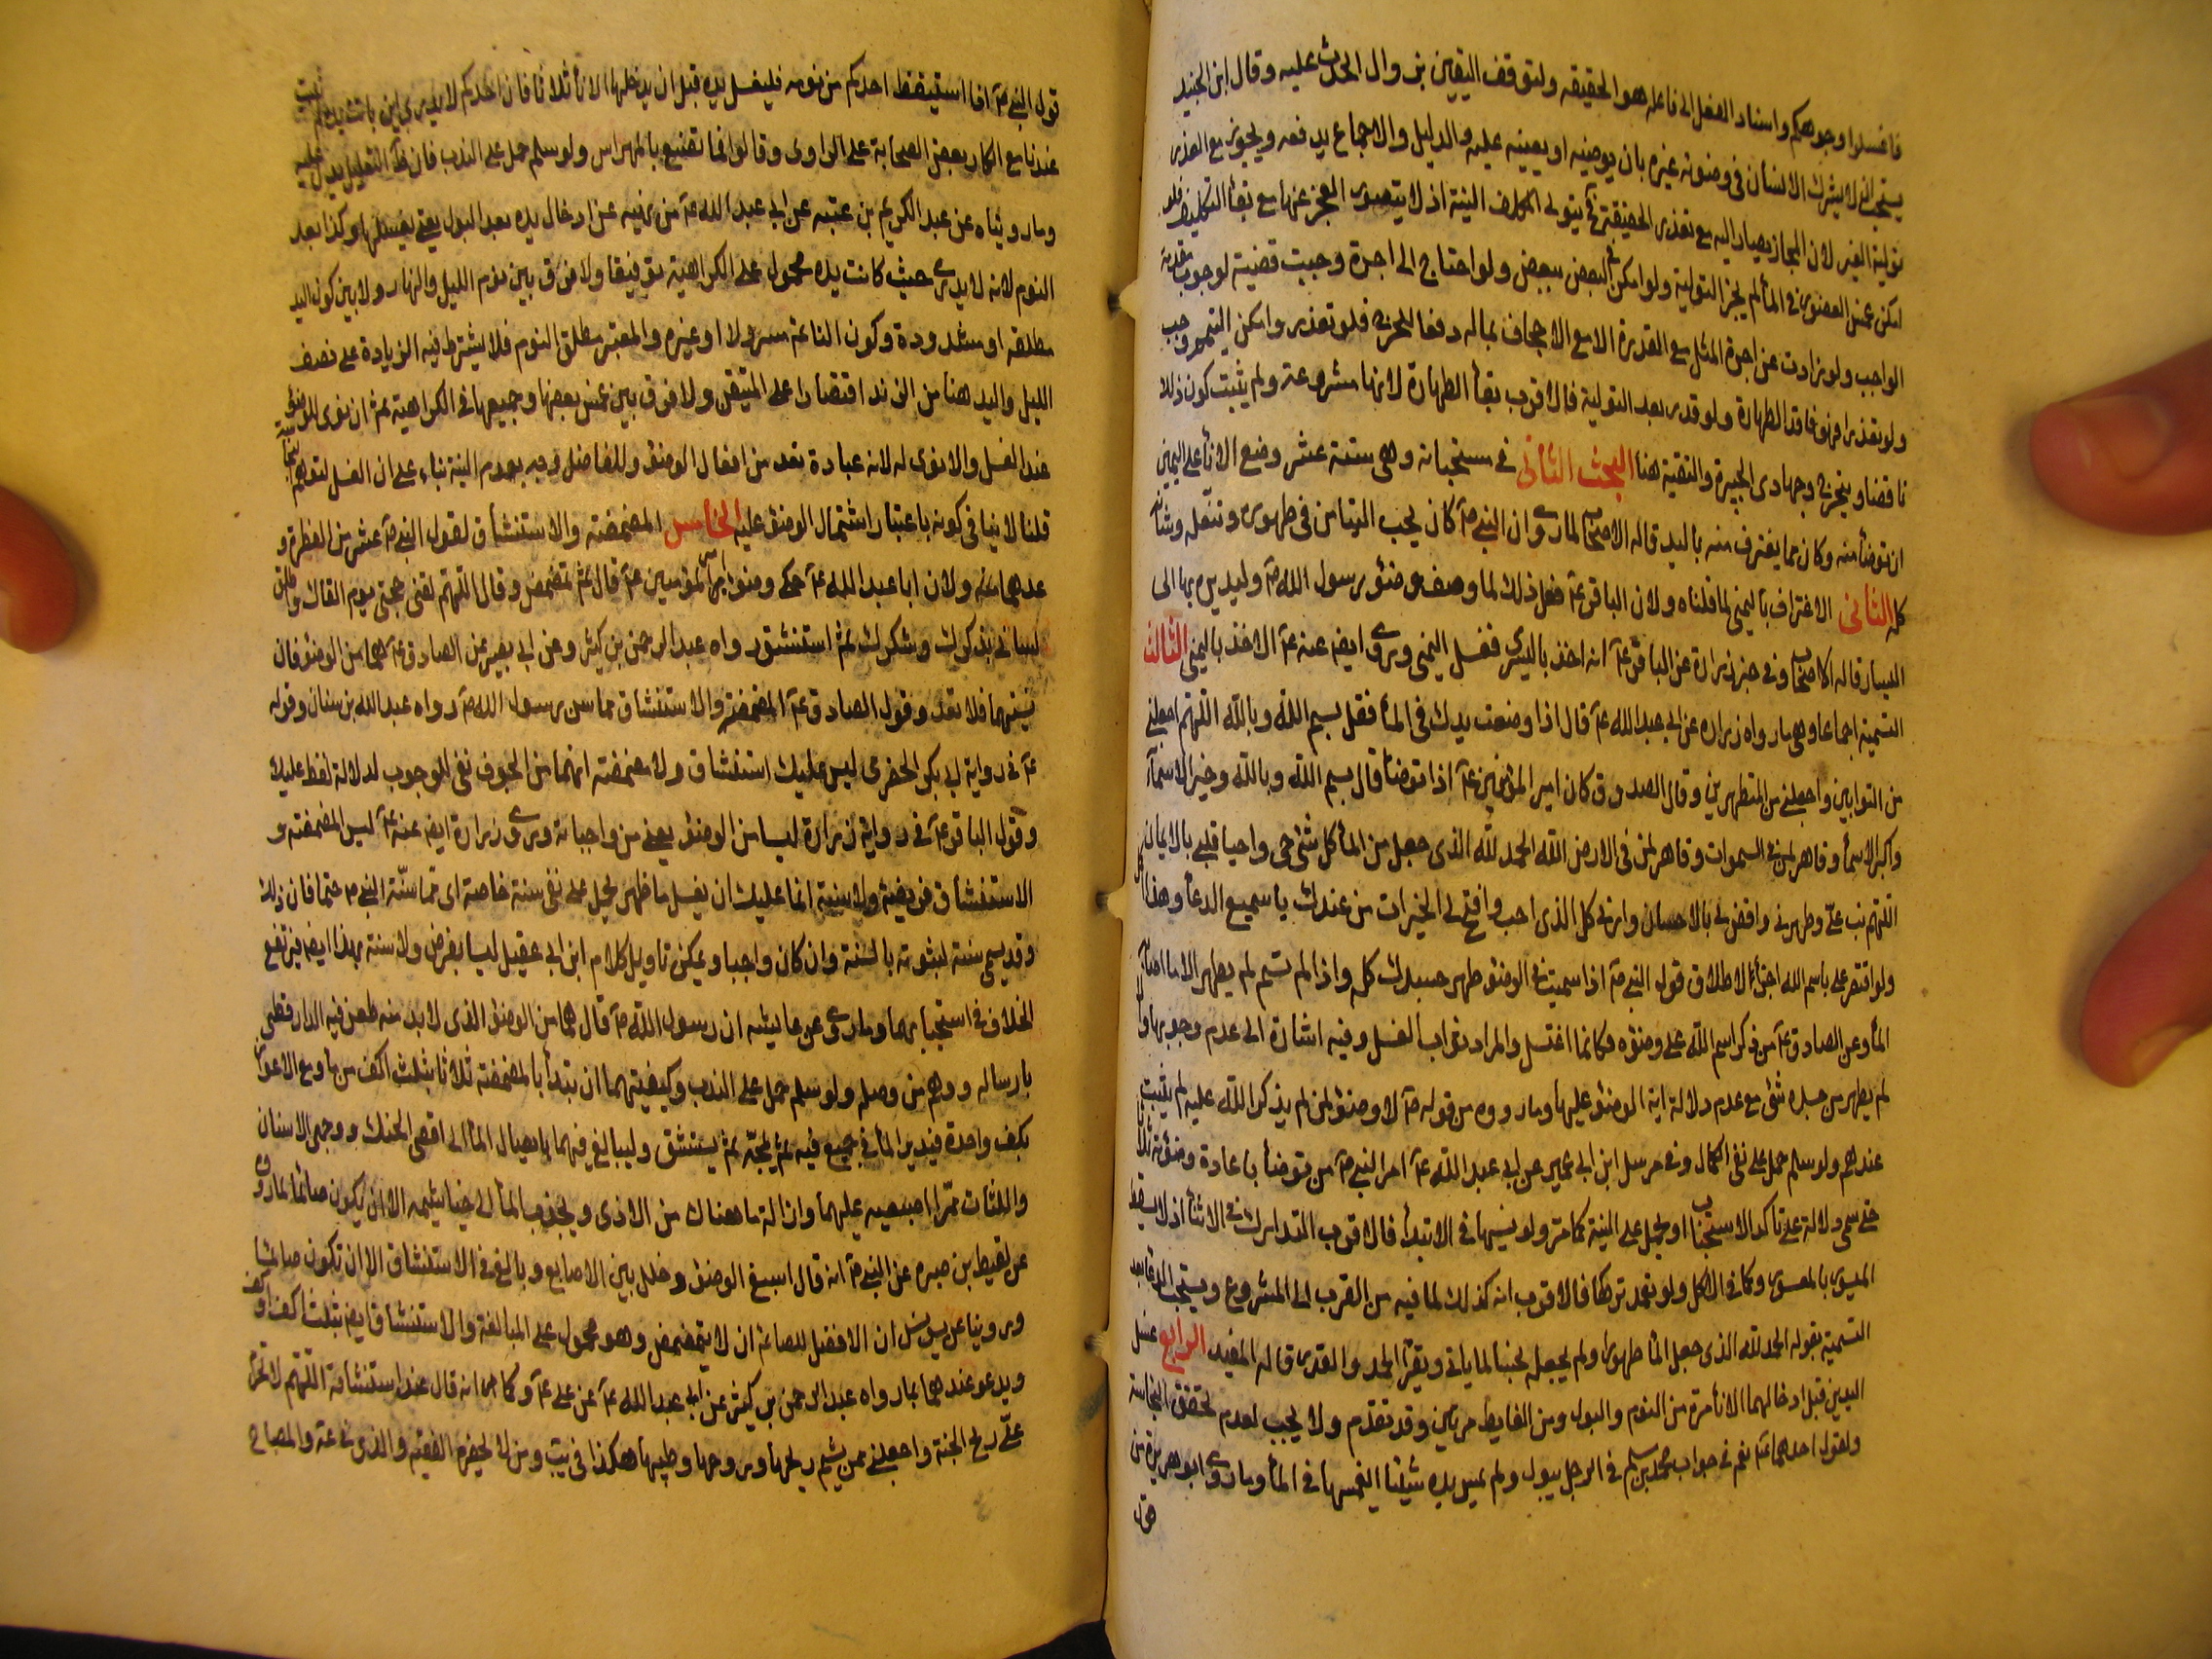 فاغسلوا وجوهكم واسناد الفعل الى فاعله هو الحقيقه ولتوقف اليقين بزوال الحدث عليه وقال ابن الجنيد
يستحب ان لا يشرك الانسان في وضوئه غيره بان يوضيه او يعينه عليه والدليل والاجماع يدفعه ويجوز مع العذر
تولية الغير لان المجاز يصار اليه مع تعذر الحقيقة نعم يتولى المكلف النية اذ لا يتصور العجز عنها مع بقاء التكليف فلو
امكن غمس العضو في الماء لم يجز التولية ولو امكن البعض ببعض ولو احتاج الى اجرة وجبت قضية لوجوب مقدمة
الواجب ولو زادت عن اجرة المثل مع القدرة الا مع الاجحاف بماله دفعا للحرج فلو تعذر وامكن التيمم وجب
ولو تعذرا فهو فاقد الطهارة ولو قدر بعد التولية فالاقرب بقاء الطهارة لانها مشروعة ولم يثبت كون ذلك
ناقضا ويتخرج وجها ذي الجبيرة والتقية هنا البحث الثاني في مستحباته وهي ستة عشر وضع الاناء على اليمين
ان توضأ منه وكان مما يغترف منه باليد قاله الاصحاب لما روي ان النبي ص كان يحب التيامن في طهوره وتنعله وشأنه
كله الثاني الاغتراف باليمنى لما قلناه ولان الباقر ع فعل ذلك لما وصف وضوء رسول الله ص وليديره بها الى
اليسار قاله الاصحاب وفي خبر زرارة عن الباقر ع انه اخذ باليسرى فغسل اليمنى وروي ايض عنه ع الاخذ باليمنى الثالث
التسمية اجماعا وهي ما رواه زرارة عن ابي عبد الله ع قال اذا وضعت يدك في الماء فقل بسم الله وبالله اللهم اجعلني
من التوابين واجعلني من المتطهرين وقال الصدوق كان امير المؤمنين ع اذا توضأ قال بسم الله وبالله وخير الاسماء
واكبر الاسماء وقاهر لمن في السموات وقاهر لمن في الارض الله الحمد لله الذي جعل من الماء كل شئ حي واحيا قلبي بالايمان
اللهم تب علي وطهرني واقض لي بالاحسان وارني كل الذي احب وافتح لي الخيرات من عندك يا سميع الدعاء وهذا اكمل
ولو اقتصر على باسم الله اجزأ لاطلاق قول النبي ص اذا سميت في الوضوء طهر جسدك كله واذا لم تسم لم يطهر الا ما اصابه
الماء وعن الصادق ع من ذكر اسم الله على وضوئه فكانما اغتسل والمراد ثواب الغسل وفيه اشارة الى عدم وجوبها والا
لم يطهر من جسده شئ مع عدم دلالة اية الوضوء عليها وما رووه من قوله ص لا وضوء لمن لم يذكر الله عليه لم يثبت
عندهم ولو سلم حمل على نفي الكمال وفي مرسل ابن ابي عمير عن ابي عبد الله ع امر النبي ص من توضأ باعادة وضوئه ثلاثا
حتى سمى دلالة على تأكد الاستحباب او يحمل على النية كما مر ولو نسيها في الابتداء فالاقرب التدارك في الاثناء اذ لا يسقط
الميسور بالمعسور وكما في الاكل ولو تعمد تركها فالاقرب انه كذلك لما فيه من القرب الى المشروع ويستحب الدعاء بعد
التسمية بقوله الحمد لله الذي جعل الماء طهورا ولم يجعله نجسا لما ياتي ويقرأ الحمد والقدر قاله المفيد الرابع غسل
اليدين قبل ادخالهما الاناء مرة من النوم والبول ومن الغايط مرتين وقد تقدم ولا يجب لعدم تحقق النجاسة
ولقول احدهما ع نعم في جواب محمد بن مسلم في الرجل يبول ولم يمس يده شيئا ايغمسها في الماء وما روى ابو هريرة من
قول النبي ص اذا استيقظ احدكم من نومه فليغسل يده قبل ان يدخلها الاناء ثلاثا فان احدكم لا يدري اين باتت يده لم يثبت
عندنا مع انكار بعض الصحابة على الراوي وقالوا فما نصنع بالمهراس ولو سلم حمل على الندب فان التعليل يدل عليه
وما رويناه عن عبد الكريم بن عتبه عن ابي عبد الله ع من نهيه عن ادخال يده بعد البول حتى يغسلها وكذا بعد
النوم لانه لا يدري حيث كانت يده محمول على الكراهية توفيقا ولا فرق بين نوم الليل والنهار ولا بين كون اليد
مطلقه او مشدودة وكون النائم مسرولا او غيره والمعتبر مطلق النوم فلا يشترط فيه الزيادة على نصف
الليل واليد هنا من الزند اقتصارا على المتيقن ولا فرق بين غمس بعضها وجميعها في الكراهية ثم ان نوى للوضوء
عند الغسل والا نوى له لانه عبادة تعد من افعال الوضوء وللفاضل وجه بعدم النية بناء على ان الغسل لتوهم النجاسة
قلنا لا ينافي كونه باعتبار اشتمال الوضوء عليه الخامس المضمضة والاستنشاق لقول النبي ص عشر من الفطرة و
عدهما منه ولان ابا عبد الله ع حكى وضوء امير المؤمنين ع قال ثم تمضمض وقال اللهم لقني حجتي يوم القاك واطلق
لساني بذكرك وشكرك ثم استنشق رواه عبد الرحمن بن كثير وعن ابي بصير عن الصادق ع هما من الوضوء فان
نسيتهما فلا تعد وقول الصادق ع المضمضة والاستنشاق مما سن رسول الله ص رواه عبد الله بن سنان وقوله
ع في رواية ابي بكر الحضرمي ليس عليك استنشاق ولا مضمضة انهما من الجوف نفي للوجوب لدلالة لفظ عليك
وقول الباقر ع في رواية زرارة ليسا من الوضوء يعني من واجباته وروى زرارة ايض عنه ع ليس المضمضة و
الاستنشاق فريضة ولا سنة انما عليك ان يغسل ما ظهر يحمل على نفي سنة خاصة اي مما سنة النبي ص حتما فان ذلك
وقد يسمى سنة لثبوته بالسنة وان كان واجبا ويمكن تاويل كلام ابن ابي عقيل ليسا بفرض ولا سنة بهذا ايض فيرتفع
الخلاف في استحبابهما وما روي عن عايشه ان رسول الله ص قال هما من الوضوء الذي لا بد منه طعن فيه الدارقطني
بارساله ووهم من وصله ولو سلم حمل على الندب وكيفيتهما ان يبدأ بالمضمضة ثلاثا بثلث اكف من ماء ومع الاعواز
بكف واحدة فيدير الماء في جميع فيه ثم يمجه ثم يستنشق وليبالغ فيهما بايصال الماء الى اقصى الحنك ووجهي الاسنان
واللثات ممرا اصبعيه عليهما وازالة ما هناك من الاذى ويجذب الماء الى خياشيمه الا ان يكون صائما لما روي
عن لقيط بن صبره عن النبي ص انه قال اسبغ الوضوء وخلل بين الاصابع وبالغ في الاستنشاق الا ان تكون صائما
وروينا عن يونس ان الافضل للصائم ان لا يتمضمض وهو محمول على المبالغة والاستنشاق ايض بثلث اكف او كف
ويدعو عندهما بما رواه عبد الرحمن بن كثير عن ابي عبد الله ع عن علي ع وكما مر انه قال عند استنشاقه اللهم لا تحرم
علي ريح الجنة واجعلني ممن يشم ريحها وروحها وطيبها هكذا في يب ومن لا يحضره الفقيه والذي في عة والمصباح